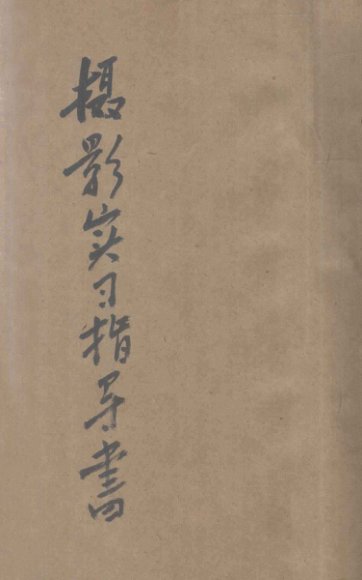 摄影实习指导书